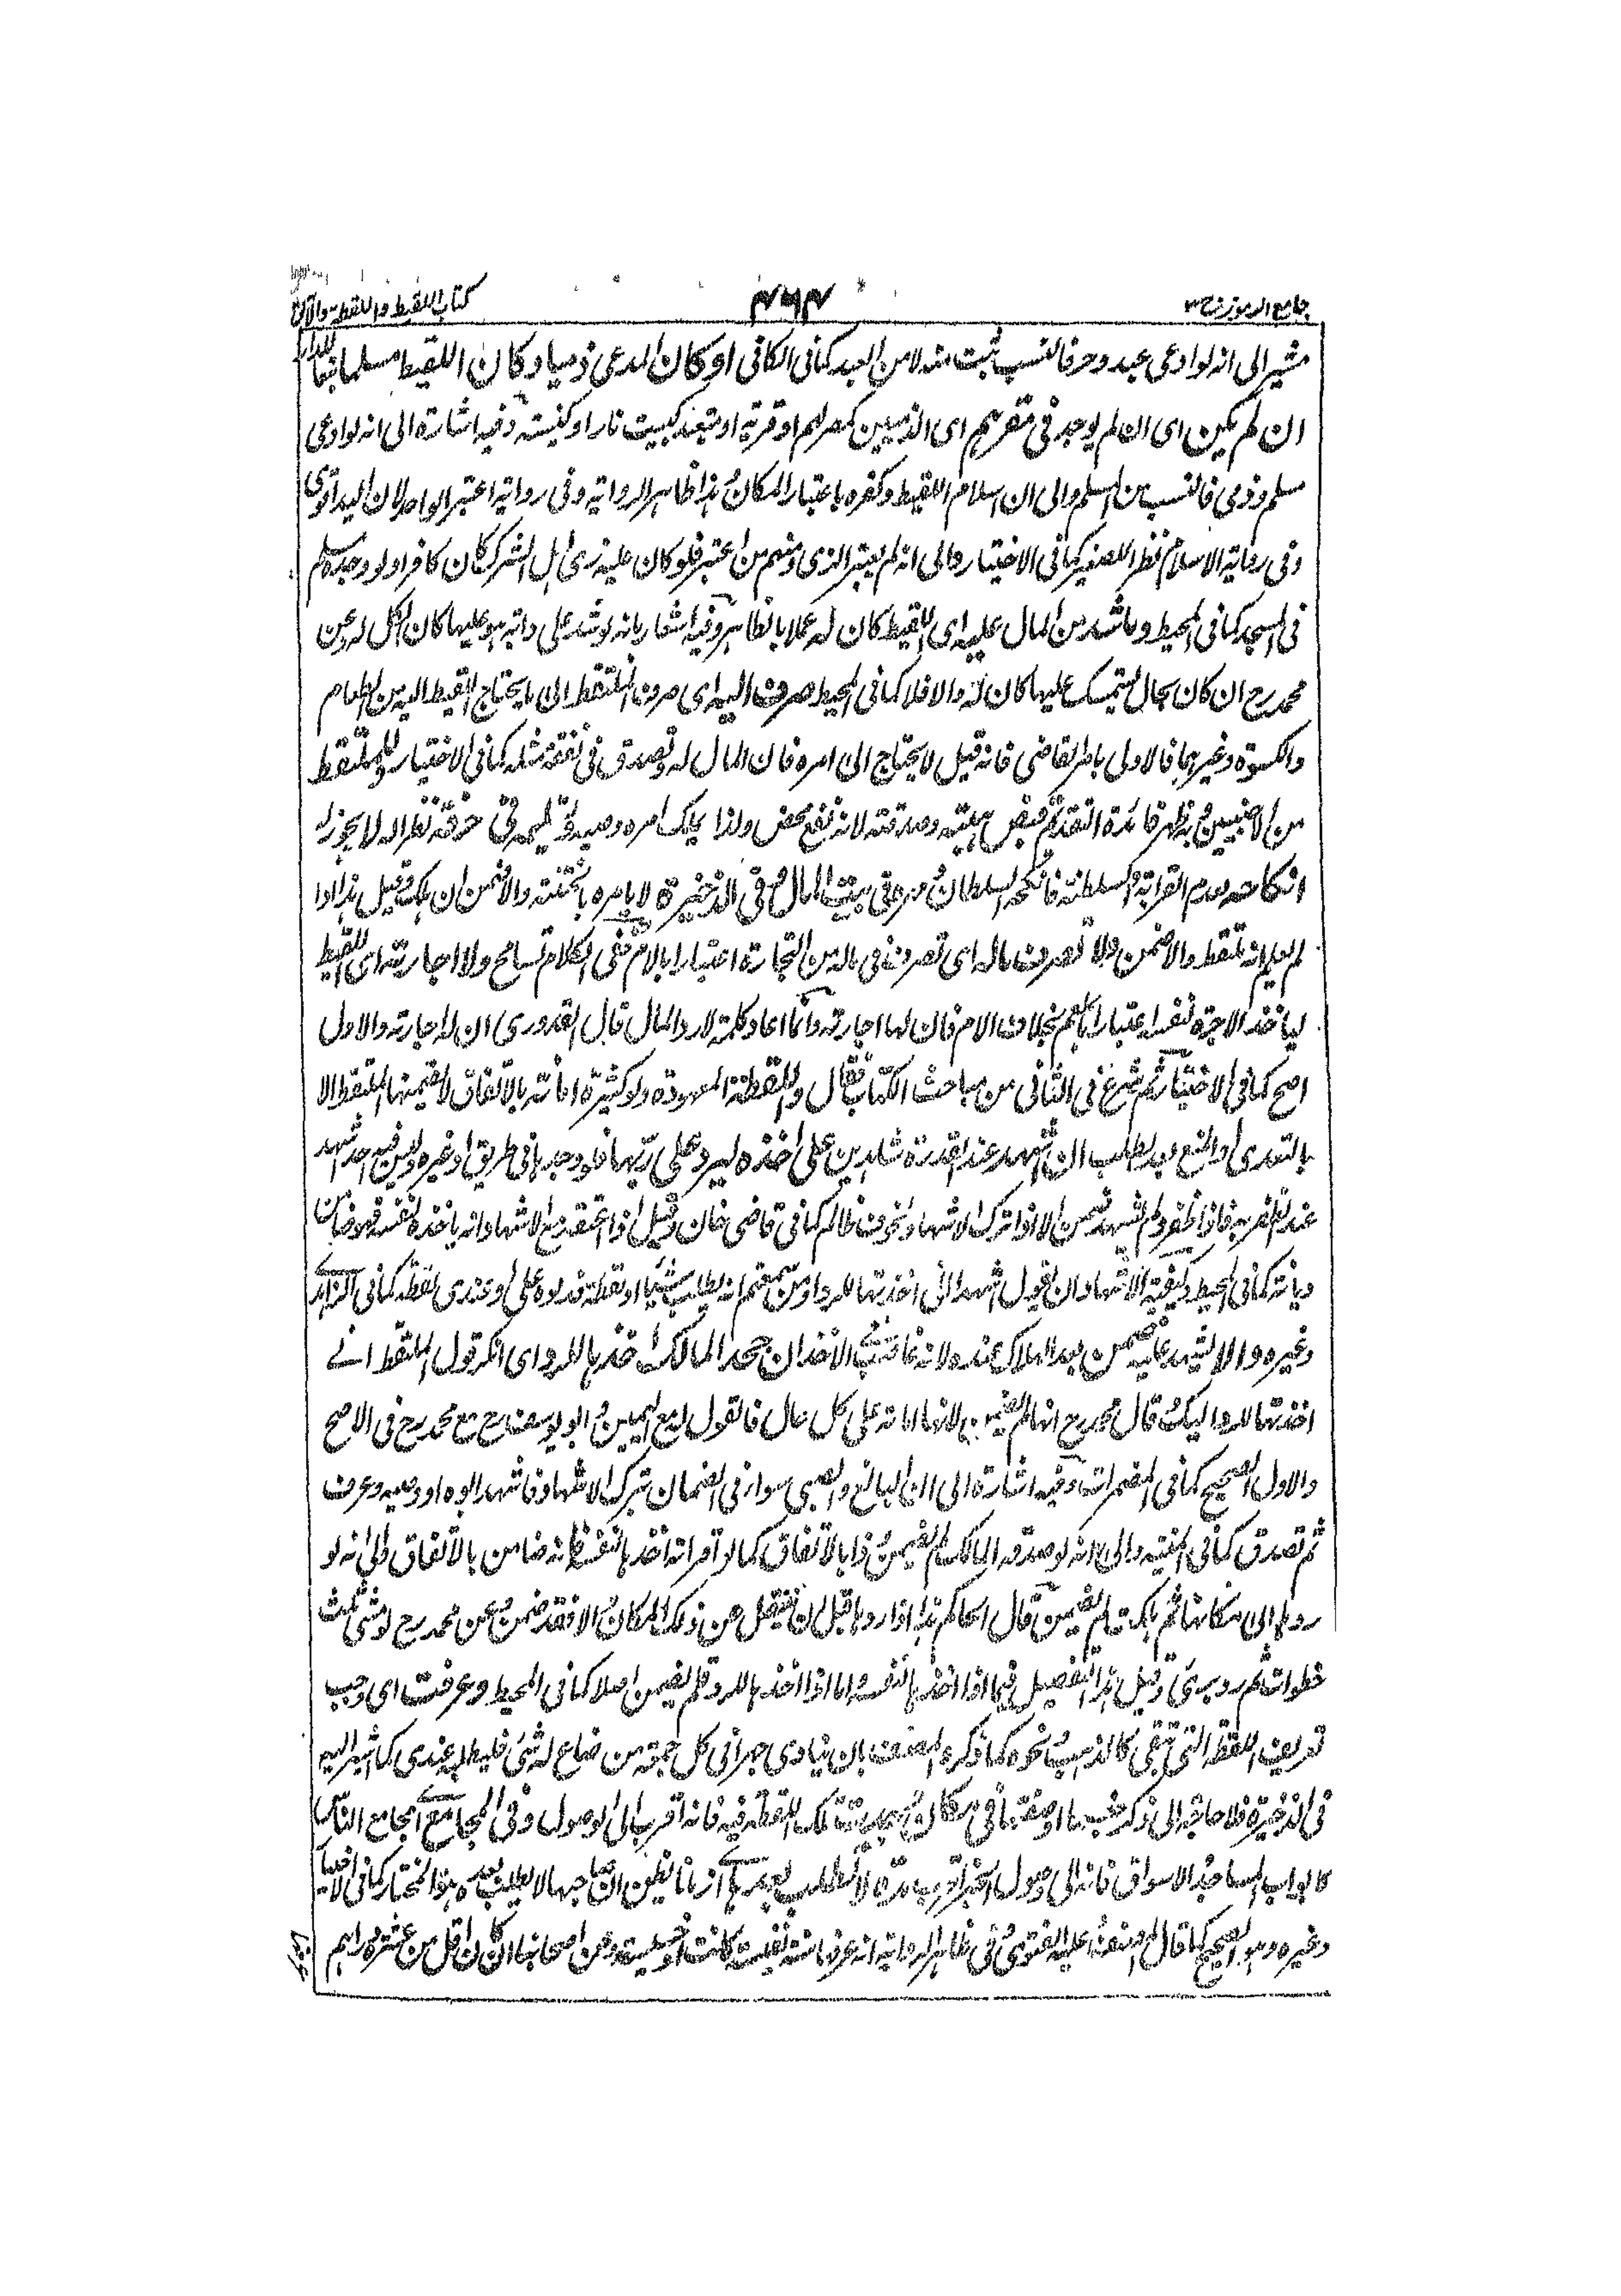 جامع الرموز ج ٣
٣٦٣
كتاب اللقيط واللقطة والآبق
مشير الى انه لو ادعى عبد وحر فالنسب ثبت منه لا من العبد كما فى الكافى او كان المدعى ذميا وكان اللقيط مسلما تبعا للدار
ان لم يكن اى ان لم يوجد فى مقرهم اى الذميين كمصر لهم او قرية او متعبد كبيت نار او كنيسة وفيه اشارة الى انه لو ادعى
مسلم وذمى فالنسب من المسلم والى ان اسلام اللقيط وكفره باعتبار المكان هذا ظاهر الرواية وفى رواية اعتبر الواجد لان اليد اقوى
وفى رواية الاسلام نظرا للصغير كما فى الاختيار والى انه لم يعتبر الزى ومنهم من اعتبر فلو كان عليه زى اهل الشرك كان كافرا ولو وجده مسلم
فى المسجد كما فى المحيط وما شد من المال عليه اى اللقيط كان له عملا بالظاهر وفيه اشعار بانه لو شد على دابة هو عليها كان الكل له وعن
محمد رح ان كان بحال يستمسك عليها كان له والا فلا كما فى المحيط صرف اليه اى صرف الملتقط الى ما يحتاج اللقيط اليه من الطعام
والكسوة وغيرهما فالاولى بامر القاضى فانه قيل لا يحتاج الى امره فان المال له وتصدق فى نفقة مثله كما فى الاختيار وللملتقط
من الاجنبيين به ظهر فائدة التقديم قبض هبته وصدقته لانه نفع محض ولذا يملك امه ووصيه وتسليمه فى حرفة نظرا له لا يجوز له
انكاحه لعدم القرابة والسلطنة فانكحه السلطان ومهره فى بيت المال فى الذخيرة لا يامره بالختنة والا ضمن ان هلك وقيل هذا اذا
لم يعلم انه ملتقط والا ضمن ولا تصرف ماله اى تصرفه فى ماله من التجارة اعتبارا بالام ففى الكلام تسامح ولا اجارته اى اللقيط
لياخذ الاجرة لنفسه اعتبارا بالعم بخلاف الام فان لها اجارته وانما اعاد كلمة لا رد المال قال القدورى ان له اجارته والاول
اصح كما فى الاختيار ثم شرع فى الثانى من مباحث الكتاب فقال واللقطة المعهودة ولو كثيرة امانة بالاتفاق لا يضمنها الملتقط الا
بالتعدى والمنع بعد الطلب ان اشهد عند القدرة شاهدين على اخذه ليرد على ربها فلو وجدها فى طريق او غيره وليس فيه احد اشهد
عند الظفر به فاذا ظفر ولم يشهد ضمن الا اذا ترك الاشهاد لخوف ظالم كما فى قاضى خان وقيل اذا تحقق مع الاشهاد انه ياخذه لنفسه فهو ضامن
ديانة كما فى المحيط وكيفية الاشهاد ان يقول اشهدوا انى اخذتها للرد او من سمعتم انه يطلب شيئا او لقطة فدلوه على او عندى لقطة كما فى الزاهدى
وغيره والا يشهد عليه ضمن بعد الهلاك عنده لانه غاصب الاخذ ان جحد المالك اخذها للرد اى انكر قول الملتقط انى
اخذتها للرد اليك قال محمد رح انها لم يضمن لانها امانة على كل حال فالقول له مع اليمين ابو يوسف رح مع محمد رح فى الاصح
والاول الصحيح كما فى المضمرات وفيه اشارة الى ان البالغ والصبى سواء فى الضمان بترك الاشهاد فاشهد ابوه او وصيه وعرف
ثم تصدق كما فى المنية والى انه لو صدقه المالك لم يضمن وذا بالاتفاق كما لو اقر انه اخذها لنفسه فانه ضامن بالاتفاق والى انه لو
ردها الى مكانها ثم هلكت لم يضمن قال الحاكم هذا اذا ردها قبل ان ينتقل عن ذلك المكان والا فقد ضمن وعن محمد رح لو مشى ثلث
خطوات ثم رد برئ وقيل هذا التفصيل فيما اذا اخذها لنفسه واما اذا اخذها للرد فلم يضمن اصلا كما فى المحيط وعرفت اى وجب
تعريف اللقطة التى تبقى كالذهب ونحوه كما ذكره المصنف بان ينادى جهرا فى كل جمعة من ضاع له شئ فليطلبه عندى كما اشير اليه
فى الذخيرة فلا حاجة الى ذكر جنسها او صفتها فى مكان وجدت تلك اللقطة فيه فانه اقرب الى الوصول وفى المجامع اى مجامع الناس
كابواب المساجد والاسواق فانه الى وصول الخبر اقرب مدة لا تطلب بعدها اى زمانا يظن ان صاحبها لا يطلب بعده هو المختار كما فى الاختيار
وغيره وهو الصحيح كما قال المصنف وعليه الفتوى وفى ظاهر الرواية انه عرف سنة نفيسة كانت او خسيسة وعن اصحابنا ان كان اقل من عشرة دراهم